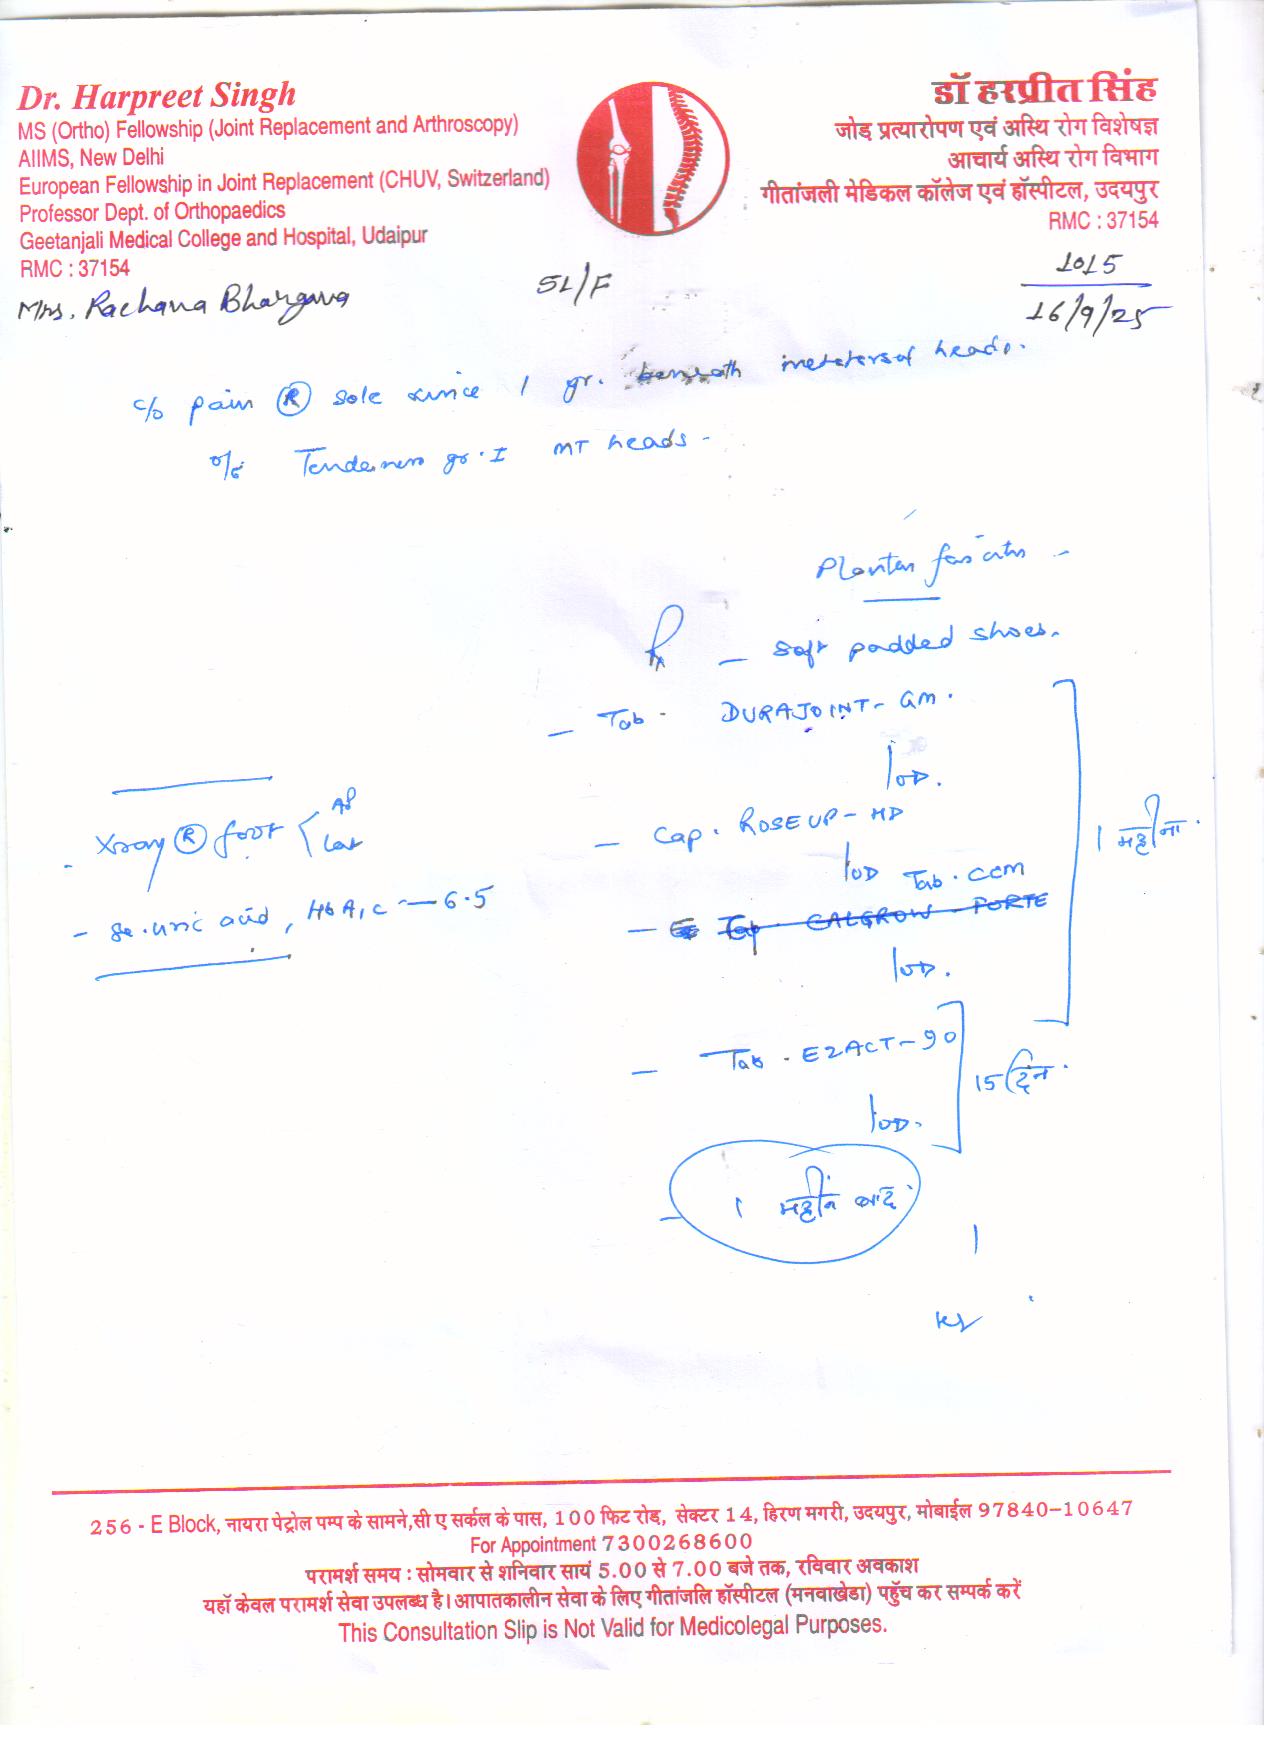 Dr. Harpreet Singh
MS (Ortho) Fellowship (Joint Replacement and Arthroscopy)
AIIMS, New Delhi
European Fellowship in Joint Replacement (CHUV, Switzerland)
Professor Dept. of Orthopaedics
Geetanjali Medical College and Hospital, Udaipur
RMC : 37154
डॉ हरप्रीत सिंह
जोड़ प्रत्यारोपण एवं अस्थि रोग विशेषज्ञ
आचार्य अस्थि रोग विभाग
गीतांजली मेडिकल कॉलेज एवं हॉस्पीटल, उदयपुर
RMC : 37154
Mrs. Rachana Bhargava
51/F
1015
16/9/25
c/o pain Ⓡ sole since 1 yr. beneath metatarsal heads.
o/e Tenderness gr. I MT heads -
Plantar fascitis -
Rx - Soft padded shoes.
- Tab. DURAJOINT-GM.
1 OD.
- Cap. ROSEUP-MD
1 OD Tab. CCM
- Tab CALGROW-FORTE
1 OD.
1 महीना.
- Tab. EZACT-90
1 OD.
15 दिन.
- 1 महीने बाद
- Xray Ⓡ foot AP
Lat
- Se. uric acid, HbA1c - 6.5
256 - E Block, नायरा पेट्रोल पम्प के सामने,सी ए सर्कल के पास, 100 फिट रोड, सेक्टर 14, हिरण मगरी, उदयपुर, मोबाईल 97840-10647
For Appointment 7300268600
परामर्श समय : सोमवार से शनिवार सायं 5.00 से 7.00 बजे तक, रविवार अवकाश
यहाँ केवल परामर्श सेवा उपलब्ध है। आपातकालीन सेवा के लिए गीतांजलि हॉस्पीटल (मनवाखेडा) पहुँच कर सम्पर्क करें
This Consultation Slip is Not Valid for Medicolegal Purposes.